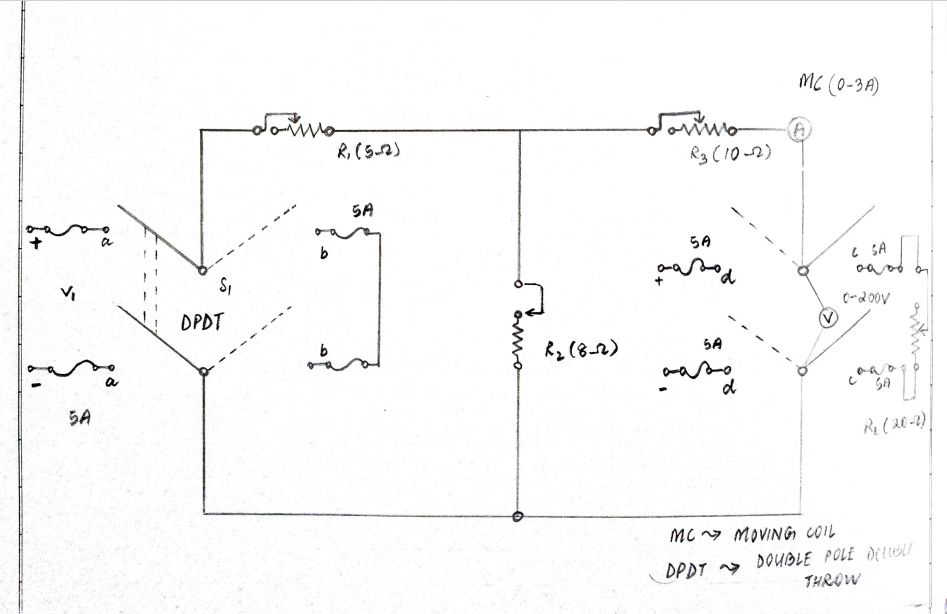 MC (0-3A)
A
R1 (5Ω)
R3 (10Ω)
5A
+
a
b
S1
V1
DPDT
-
a
5A
b
R2 (8Ω)
5A
+
d
5A
-
d
c 5A
0-200V
V
c
5A
RL (20Ω)
MC → MOVING COIL
DPDT → DOUBLE POLE DOUBLE
THROW